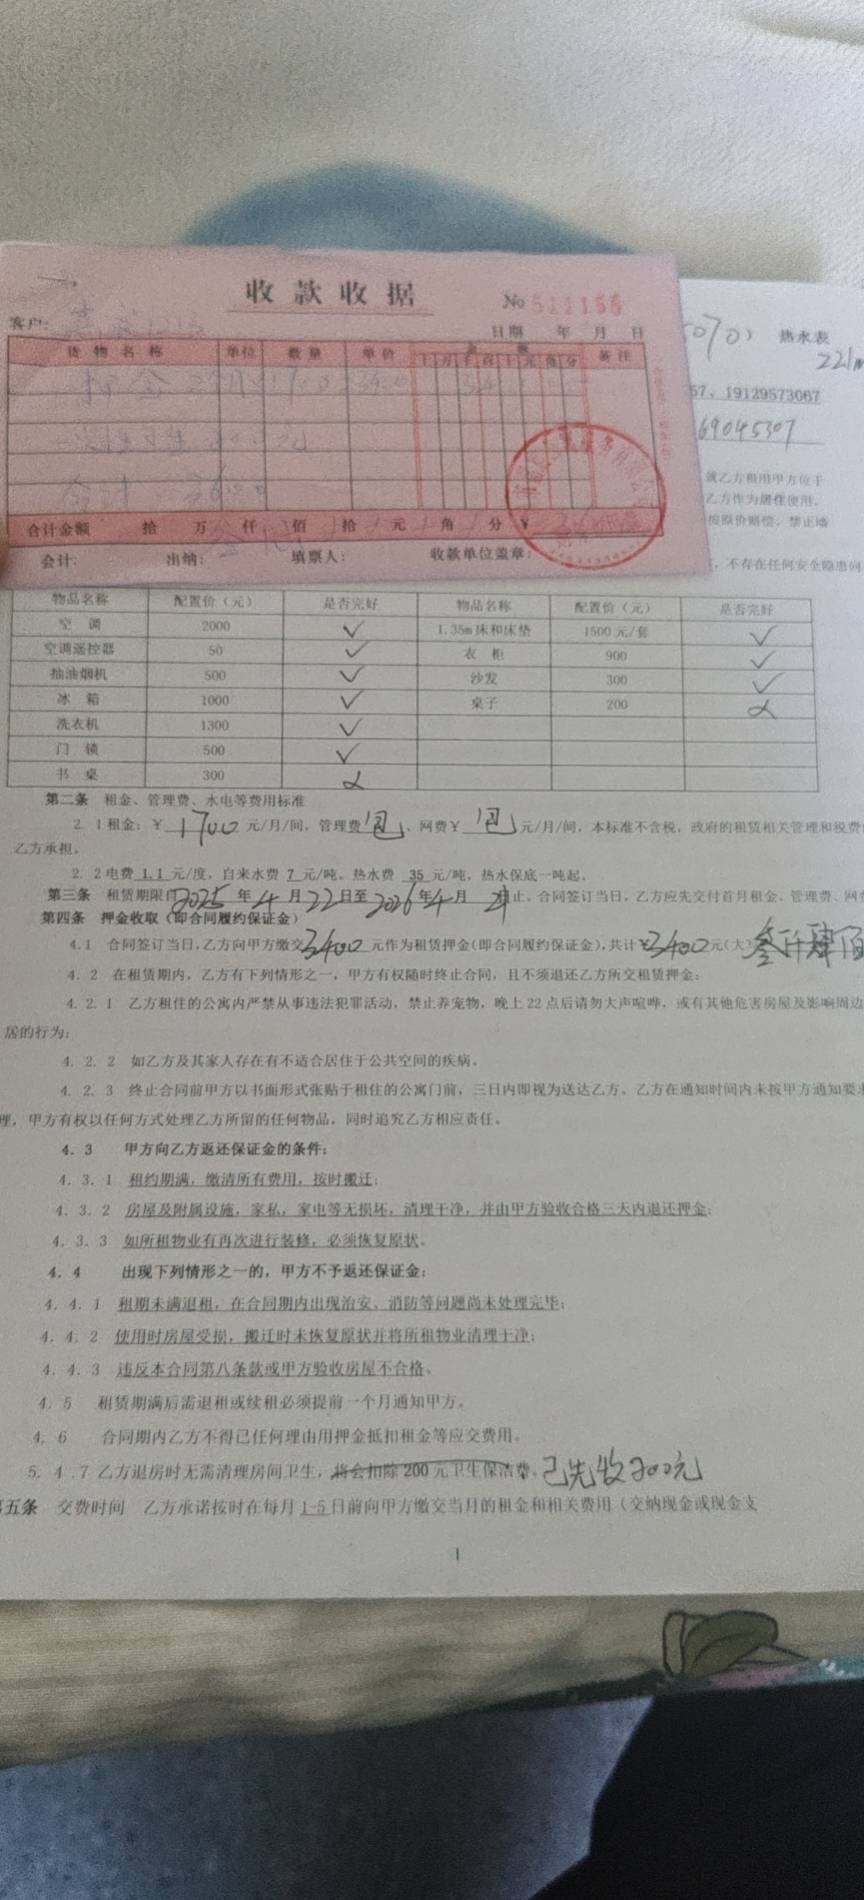 收款收据
No 511156
客户：
日期 年 月 日
货物名称 单位 数量 单价 金额 备注
十万千百十元角分
押金 2个月 1700 3400
合计
合计金额 拾 万 仟 佰 拾 元 角 分 ¥
会计: 出纳: 填票人: 收款单位盖章:
5070） 热水表
221
57、19129573067
69045307
就乙方租用甲方位于
乙方作为居住使用，
按原价赔偿，禁止墙
，不存在任何安全隐患问
物品名称 配置价（元） 是否完好 物品名称 配置价（元） 是否完好
空 调 2000 ✓ 1.35m床和床垫 1500元/套 ✓
空调遥控器 50 ✓ 衣 柜 900 ✓
抽油烟机 500 ✓ 沙发 300 ✓
冰 箱 1000 ✓ 桌子 200
洗衣机 1300 ✓
门 锁 500 ✓
书 桌 300
第二条 租金、管理费、水电等费用标准
2. 1租金：¥ 1700 元/月/间，管理费 包 、网费¥ 包 元/月/间，本标准不含税，政府的租赁相关管理和税费
乙方承担。
2. 2电费 1.1 元/度，自来水费 7 元/吨。热水费 35 元/吨，热水保底一吨起。
第三条 租赁期限自 2025 年 4 月 22 日至 2026 年 4 月 21 止。合同签订当日，乙方应先交付首月租金、管理费、网
第四条 押金收取（即合同履约保证金）
4.1 合同签订当日，乙方向甲方缴交 3400 元作为租赁押金(即合同履约保证金)，共计¥ 3400 元(大 叁仟肆佰
4. 2 在租赁期内，乙方有下列情形之一，甲方有权随时终止合同，且不须退还乙方所交租赁押金：
4. 2. 1 乙方租住的公寓内严禁从事违法犯罪活动，禁止养宠物，晚上22点后请勿大声喧哗，或有其他危害房屋及影响周边
居的行为；
4. 2. 2 如乙方及其家人存在有不适合居住于公共空间的疾病。
4. 2. 3 终止合同前甲方以书面形式张贴于租住的公寓门前，三日内即视为送达乙方。乙方在通知时间内未按甲方通知要求
理，甲方有权以任何方式处理乙方所留的任何物品，同时追究乙方相应责任。
4. 3 甲方向乙方返还保证金的条件：
4. 3. 1 租约期满，缴清所有费用，按时搬迁；
4. 3. 2 房屋及附属设施，家私，家电等无损坏，清理干净，并由甲方验收合格三天内退还押金；
4. 3. 3 如所租物业有再次进行装修，必须恢复原状。
4. 4 出现下列情形之一的，甲方不予返还保证金：
4. 4. 1 租期未满退租，在合同期内出现治安、消防等问题尚未处理完毕；
4. 4. 2 使用时房屋受损，搬迁时未恢复原状并将所租物业清理干净；
4. 4. 3 违反本合同第八条款或甲方验收房屋不合格。
4. 5 租赁期满后需退租或续租必须提前一个月通知甲方。
4. 6 合同期内乙方不得已任何理由用押金抵扣租金等应交费用。
5. 4 .7 乙方退房时无需清理房间卫生，将会扣除200元卫生保洁费。已先收200元
第五条 交费时间 乙方承诺按时在每月 1-5 日前向甲方缴交当月的租金和相关费用（交纳现金或现金支
1